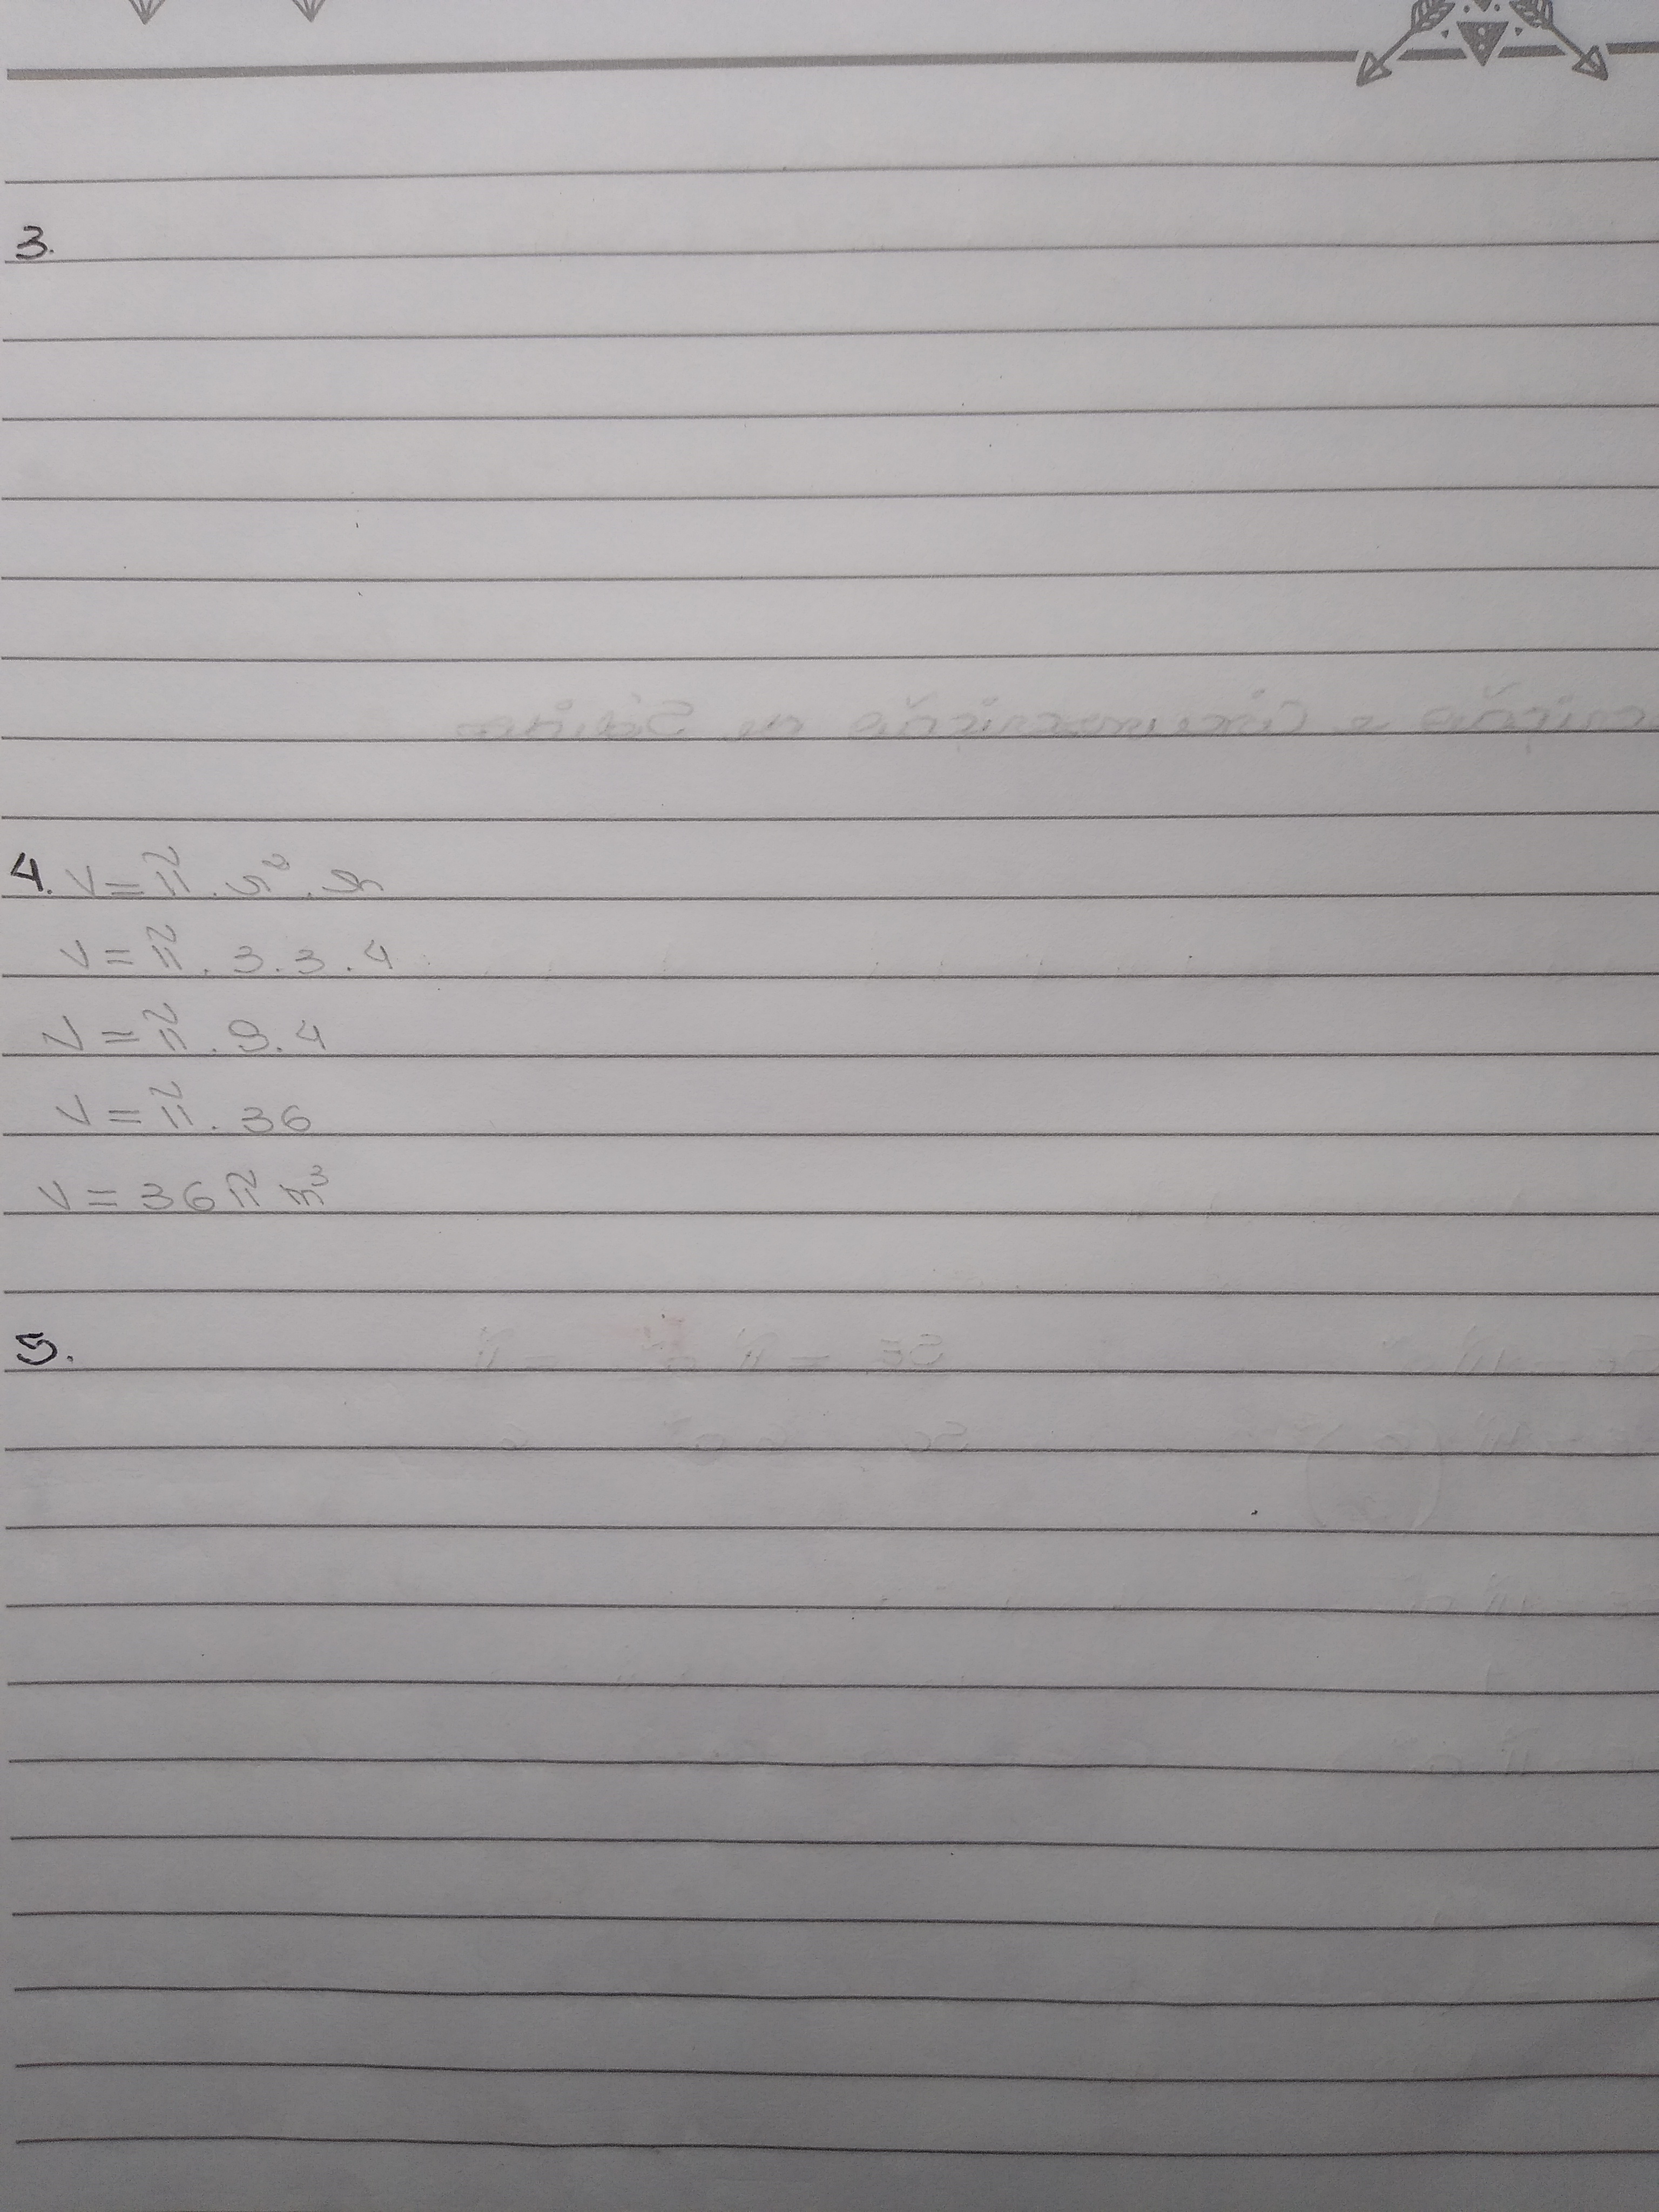 3.
4. V = π . r² . h
V = π . 3 . 3 . 4
V = π . 9 . 4
V = π . 36
V = 36 π m³
5.